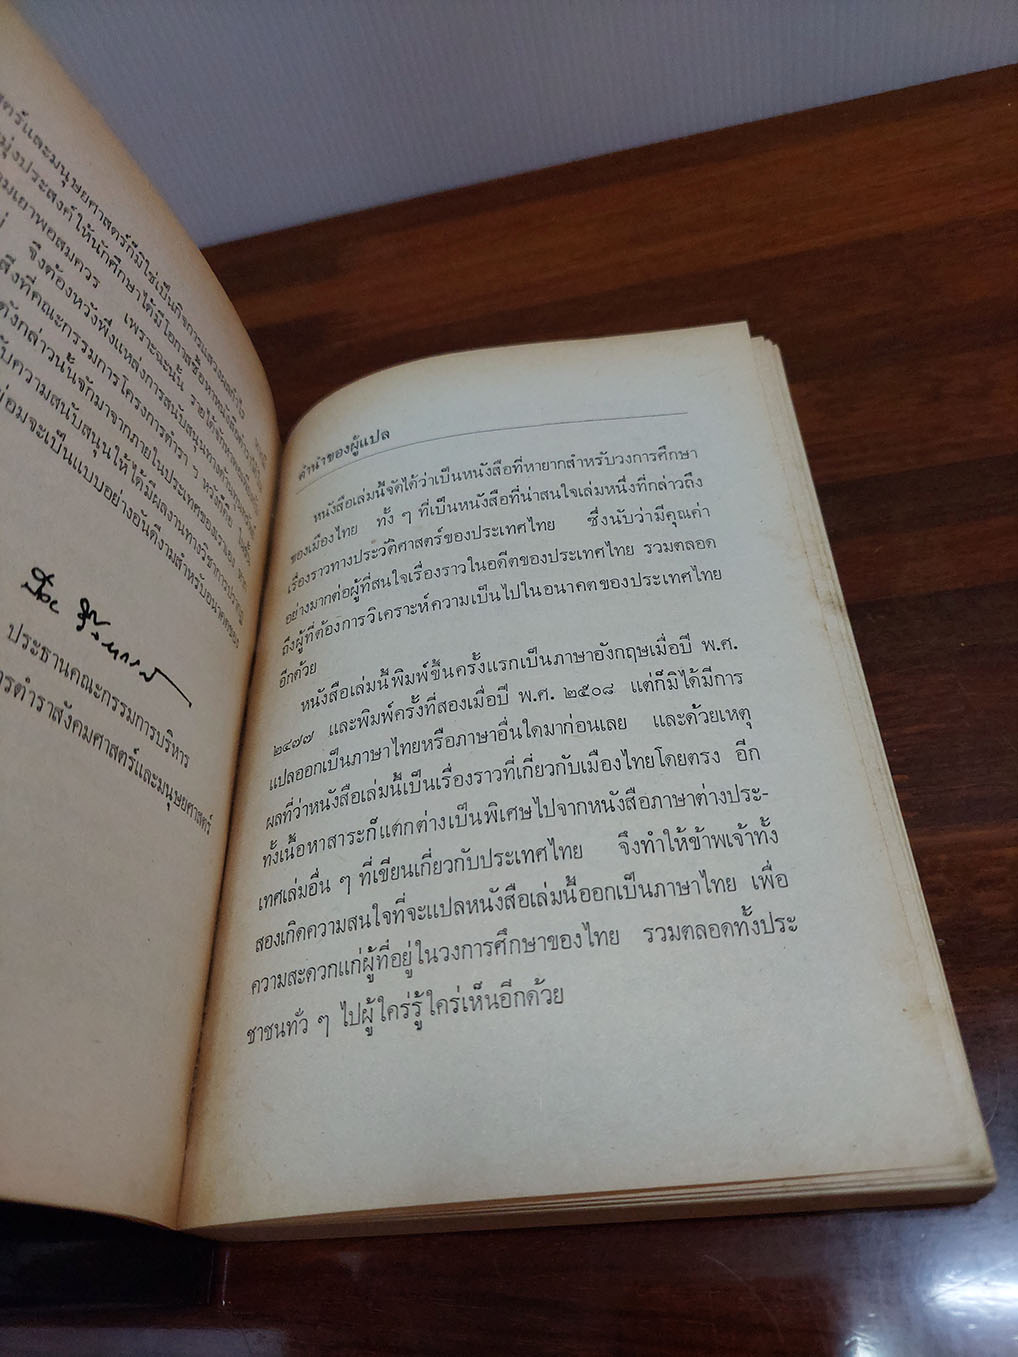 สตร์และมนุษยศาสตร์ก็มิใช่เป็นกิจการแสวงผลกำไร
มุ่งประสงค์ให้นักศึกษาได้มีโอกาสซื้อหาหนังสือ
ามเยาพอสมควร เพราะฉะนั้น
จึงต้องหวังพึ่งแหล่งการสนับสนุนทาง
สิ่งที่คณะกรรมการโครงการตำรา ฯ หวังก็คือ
ดังกล่าวนั้นจักมาจากภายในประเทศของเราเอง
ับความสนับสนุนให้ได้มีผลงานทางวิชาการปรากฏ
ย่อมจะเป็นแบบอย่างอันดีงามสำหรับอนาคตของ
ประธานคณะกรรมการบริหาร
การตำราสังคมศาสตร์และมนุษยศาสตร์
คำนำของผู้แปล
หนังสือเล่มนี้จัดได้ว่าเป็นหนังสือที่หายากสำหรับวงการศึกษา
ของเมืองไทย ทั้ง ๆ ที่เป็นหนังสือที่น่าสนใจเล่มหนึ่งที่กล่าวถึง
เรื่องราวทางประวัติศาสตร์ของประเทศไทย ซึ่งนับว่ามีคุณค่า
อย่างมากต่อผู้ที่สนใจเรื่องราวในอดีตของประเทศไทย รวมตลอด
ถึงผู้ที่ต้องการวิเคราะห์ความเป็นไปในอนาคตของประเทศไทย
อีกด้วย
หนังสือเล่มนี้พิมพ์ขึ้นครั้งแรกเป็นภาษาอังกฤษเมื่อปี พ.ศ.
๒๔๗๗ และพิมพ์ครั้งที่สองเมื่อปี พ.ศ. ๒๕๐๘ แต่ก็มิได้มีการ
แปลออกเป็นภาษาไทยหรือภาษาอื่นใดมาก่อนเลย และด้วยเหตุ
ผลที่ว่าหนังสือเล่มนี้เป็นเรื่องราวที่เกี่ยวกับเมืองไทยโดยตรง อีก
ทั้งเนื้อหาสาระก็แตกต่างเป็นพิเศษไปจากหนังสือภาษาต่างประ-
เทศเล่มอื่น ๆ ที่เขียนเกี่ยวกับประเทศไทย จึงทำให้ข้าพเจ้าทั้ง
สองเกิดความสนใจที่จะแปลหนังสือเล่มนี้ออกเป็นภาษาไทย เพื่อ
ความสะดวกแก่ผู้ที่อยู่ในวงการศึกษาของไทย รวมตลอดทั้งประ
ชาชนทั่ว ๆ ไปผู้ใคร่รู้ใคร่เห็นอีกด้วย